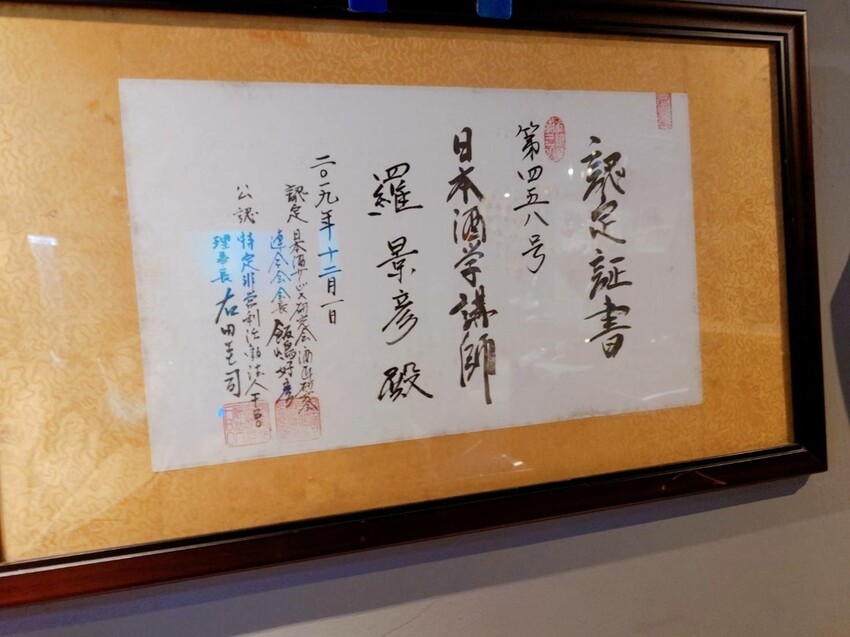 認定証書
第四五八号
日本酒学講師
羅景彦殿
二〇一九年十二月一日
認定 日本酒サービス研究会酒匠研究会
連合会会長 飯嶋好彦
公認 特定非営利活動法人
理事長 右田圭司